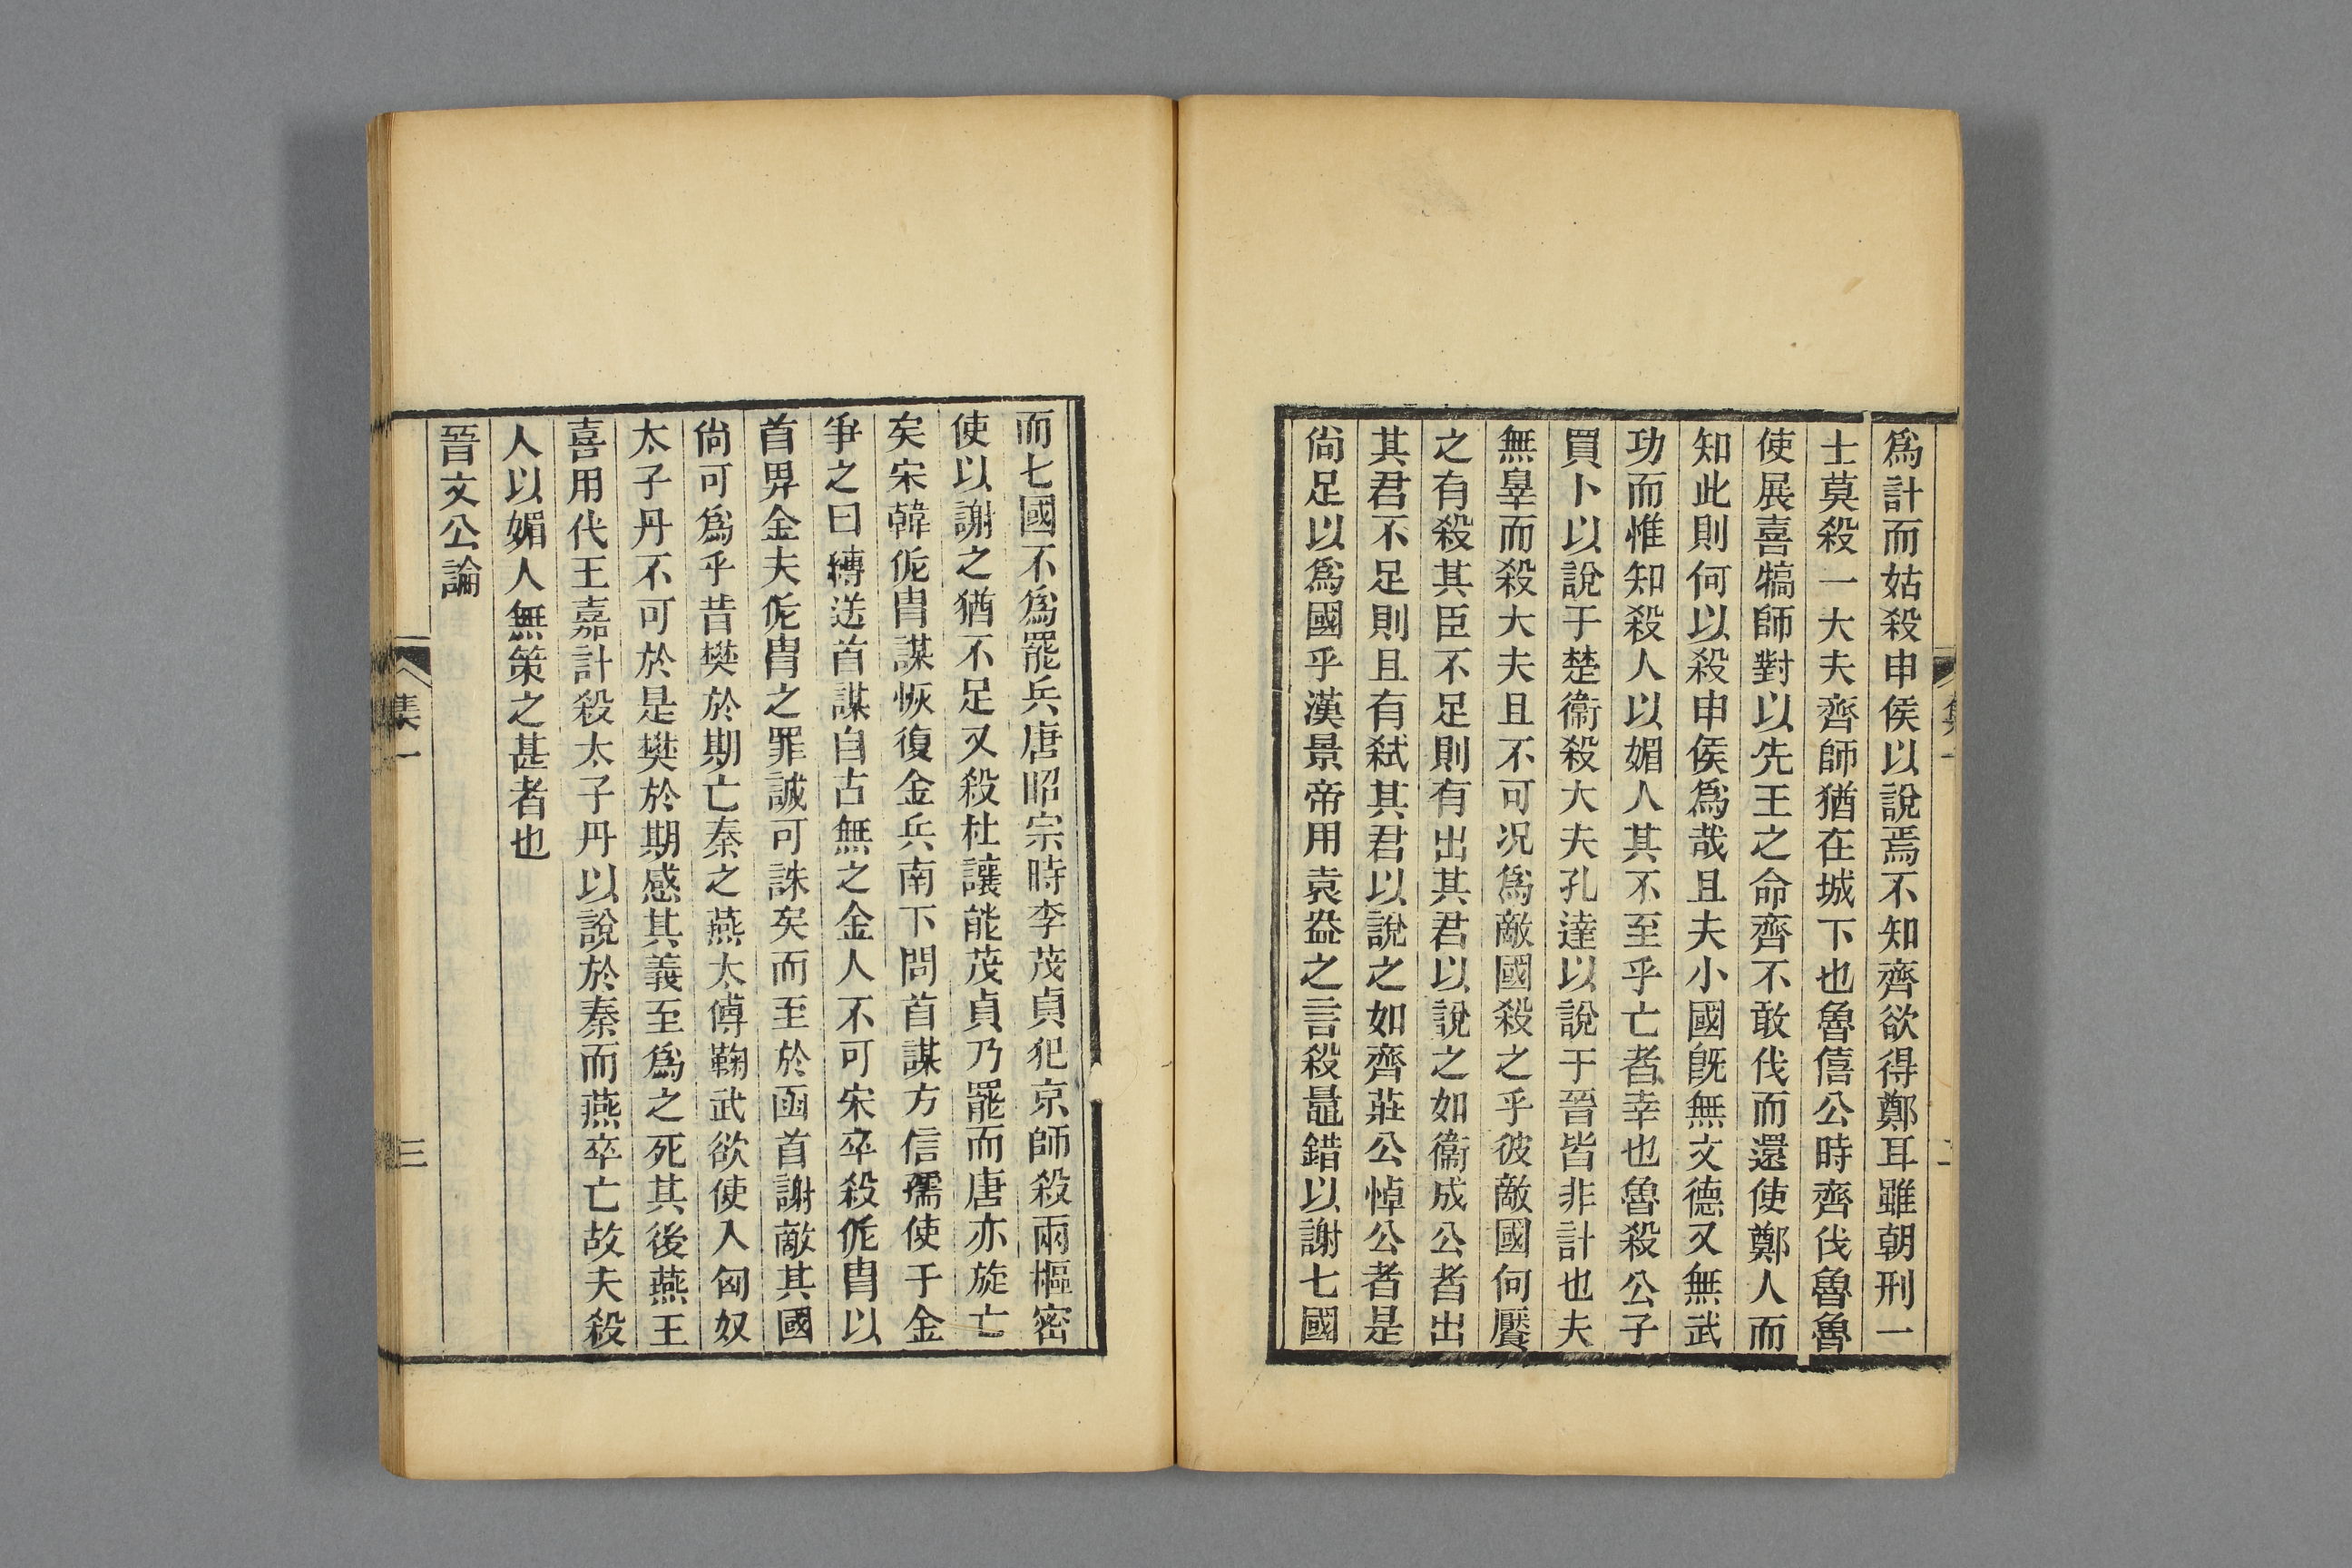 爲計而姑殺申侯以說焉不知齊欲得鄭耳雖朝刑一
士莫殺一大夫齊師猶在城下也魯僖公時齊伐魯魯
使展喜犒師對以先王之命齊不敢伐而還使鄭人而
知此則何以殺申侯爲哉且夫小國旣無文德又無武
功而惟知殺人以媚人其不至乎亡者幸也魯殺公子
買卜以說于楚衞殺大夫孔達以說于晉皆非計也夫
無辠而殺大夫且不可况爲敵國殺之乎彼敵國何饜
之有殺其臣不足則有出其君以說之如衞成公者出
其君不足則且有弑其君以說之如齊莊公悼公者是
尙足以爲國乎漢景帝用袁盎之言殺鼂錯以謝七國
集一
二
而七國不爲罷兵唐昭宗時李茂貞犯京師殺兩樞密
使以謝之猶不足又殺杜讓能茂貞乃罷而唐亦旋亡
矣宋韓侂冑謀恢復金兵南下問首謀方信孺使于金
爭之曰縛送首謀自古無之金人不可宋卒殺侂冑以
首畀金夫侂冑之罪誠可誅矣而至於函首謝敵其國
尙可爲乎昔樊於期亡秦之燕太傅鞠武欲使入匈奴
太子丹不可於是樊於期感其義至爲之死其後燕王
喜用代王嘉計殺太子丹以說於秦而燕卒亡故夫殺
人以媚人無策之甚者也
晉文公論
集一
三